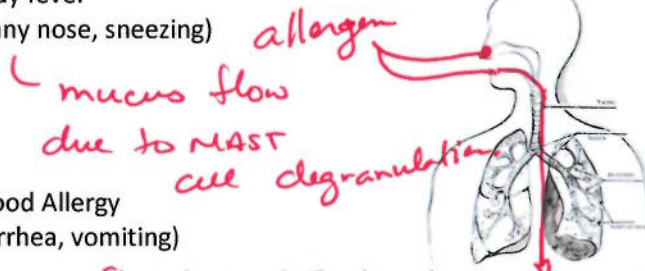 ay fever
any nose, sneezing)
allergen
mucus flow
due to MAST
cell degranulation
ood Allergy
rrhea, vomiting)